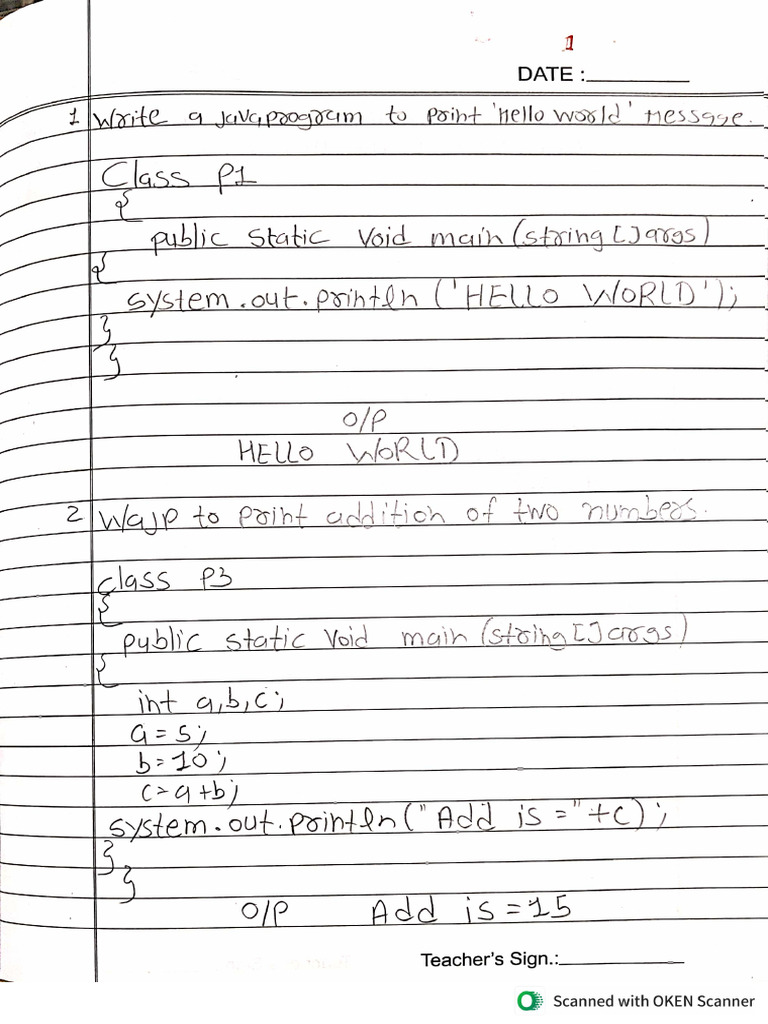 1
DATE :
1 Write a java program to print 'Hello world' Message.
Class P1
{
public static void main (string [] args)
{
system.out.println ('HELLO WORLD');
}
}
O/P
HELLO WORLD
2 WAJP to print addition of two numbers.
class P3
{
public static void main (string [] args)
{
int a,b,c;
a = 5;
b = 10;
c = a + b;
system.out.println ("Add is =" + c);
}
}
O/P Add is = 15
Teacher's Sign.:
Scanned with OKEN Scanner